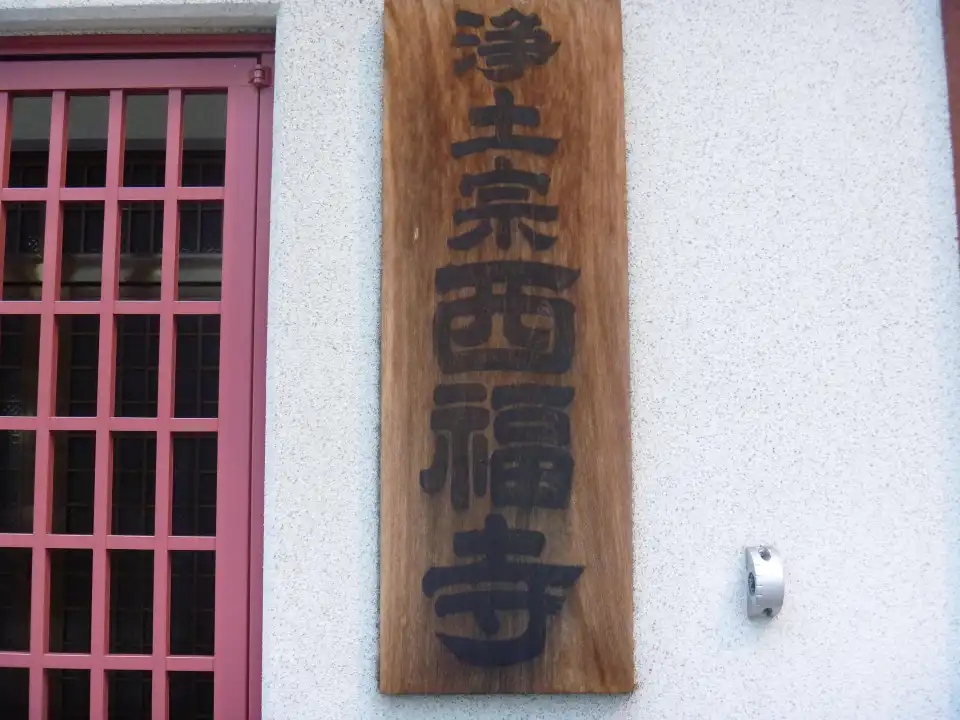 浄土宗西福寺